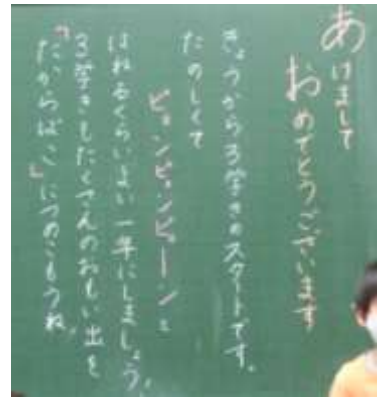 あけまして
おめでとうございます
きょうから3学きのスタートです。
たのしくて
ピョンピョンピョーンと
はねるくらいよい一年にしましょう!
3学きもたくさんのおもい出を
「たからばこ」につめこもうね!